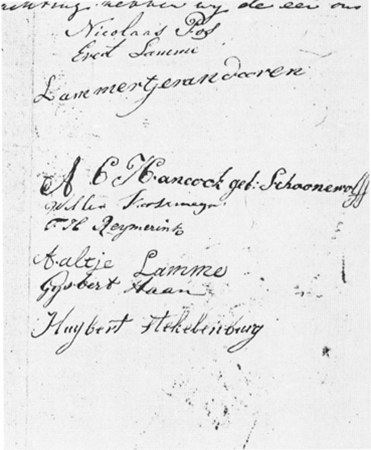 hebben wy de eer ons
Nicolaas Pos
Evert Lamme
Lammertje van Dooren
A C Hancock geb: Schoonewolff
Willem
C. H. Reymerink
Aaltje Lamme
Gijsbert Haan
Huybert Stekelenburg